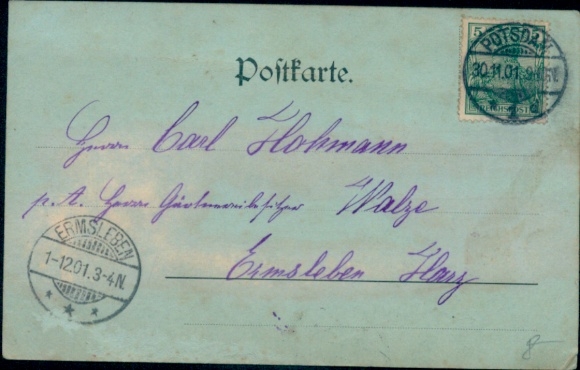 Postkarte.
5
POTSDAM
30.11.01.
REICHSPOST
Herrn Carl Hohmann
p. A. Herrn Gärtnereibesitzer Walze
Ermsleben Harz
ERMSLEBEN
1-12.01.3-4N.
8